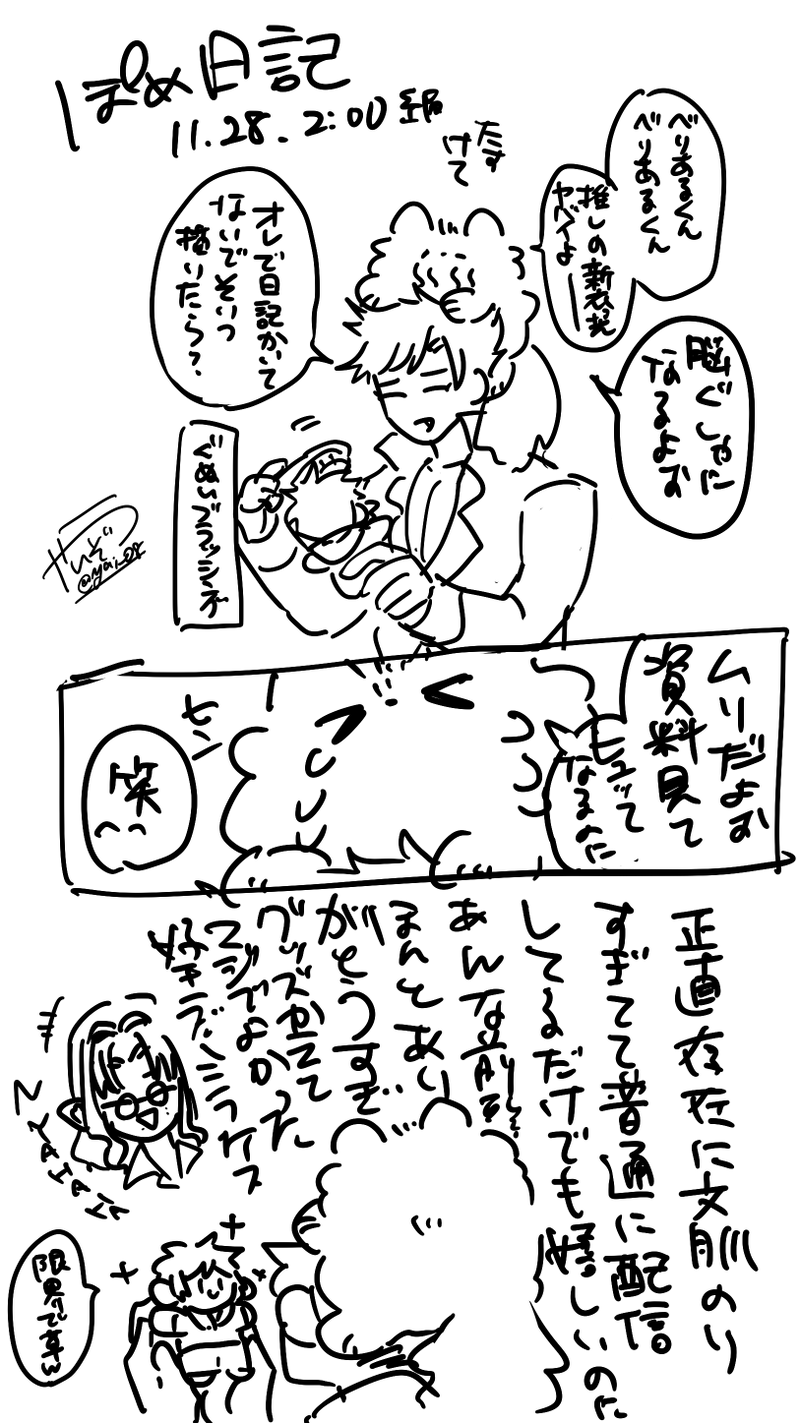 ぽめ日記
11.28. 2:00 組
たす
けて
べりあるくん
べりあるくん
推しの新衣装
ヤベイよ―
オレで日記かいて
ないでそいつ
描いたら?
脳ぐしゃに
なるよお
ぐぬいブラッシング
やいぞ
ムリだよお
資料見て
ヒュッて
なるよに
セン
笑
正直存在に文肌のり
すぎてて普通に配信
してるだけでも嬉しいのに
あんな
ほんとあり
がとうすぎ
グッズかてて
マジでよかった
好きブ
限界ですやん